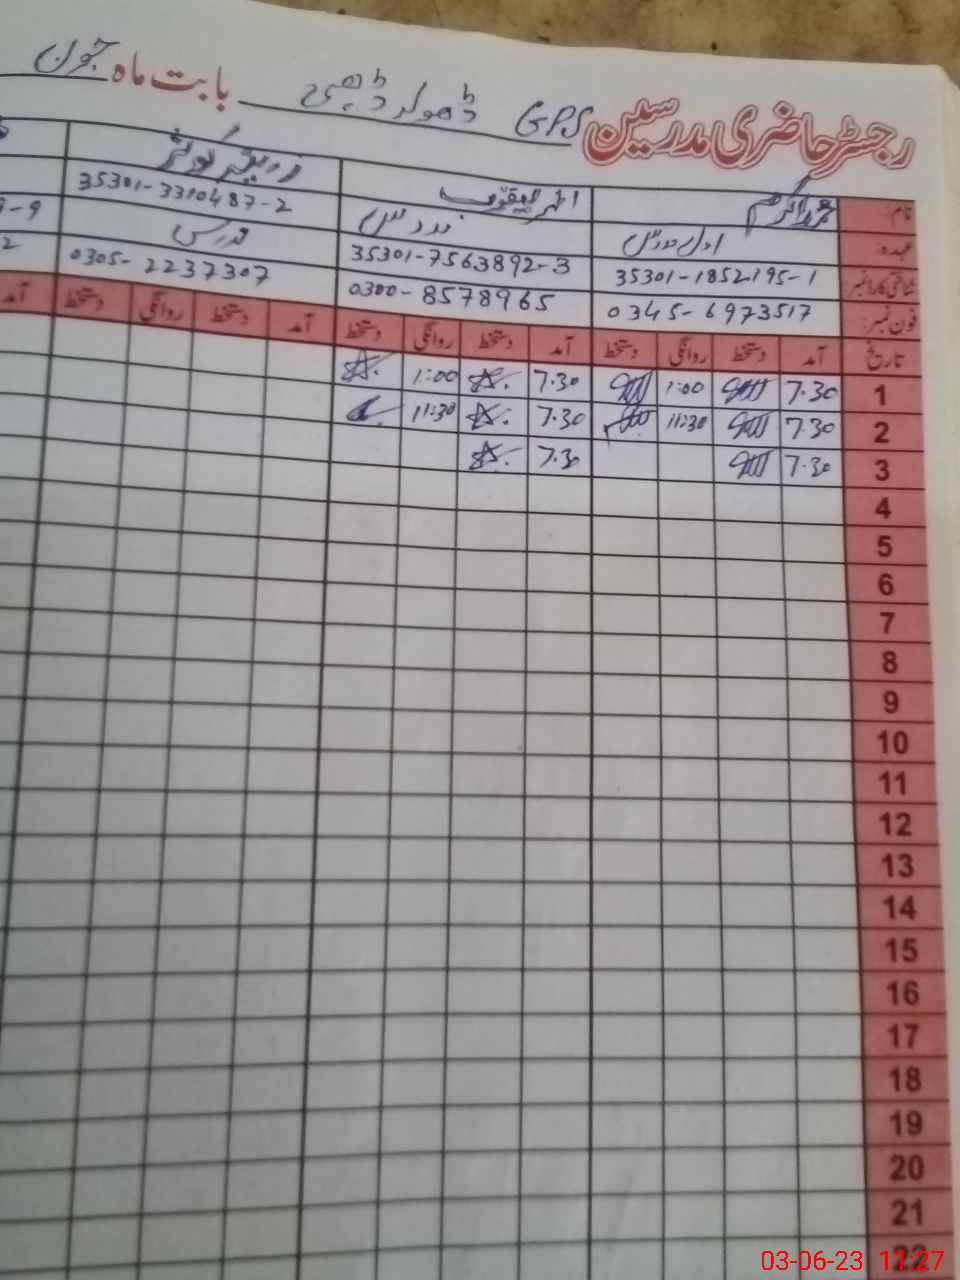 رجسٹر حاضری مدرسین GPS ڈھولر ڈبھی بابت ماہ جون
نام: محمد اکرم
عہدہ: اول مدرس مدرس
شناختی کارڈ نمبر 35301-1852195-1 35301-7563892-3 35301-3310487-2
فون نمبر: 0345-6973517 0300-8578965 0305-2237307
تاریخ آمد دستخط روانگی دستخط آمد دستخط روانگی دستخط آمد دستخط روانگی دستخط آمد
1 7.30 1:00 7.30 1:00
2 7.30 11:30 7.30 11:30
3 7.30 7.30
4
5
6
7
8
9
10
11
12
13
14
15
16
17
18
19
20
21
22
03-06-23 11:27